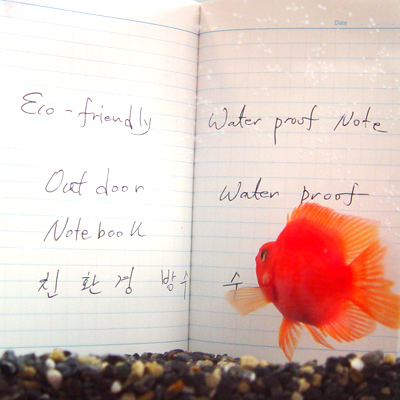 Date
Eco-friendly
Water proof Note
Outdoor
Notebook
Water proof
친 환 경 방수
수